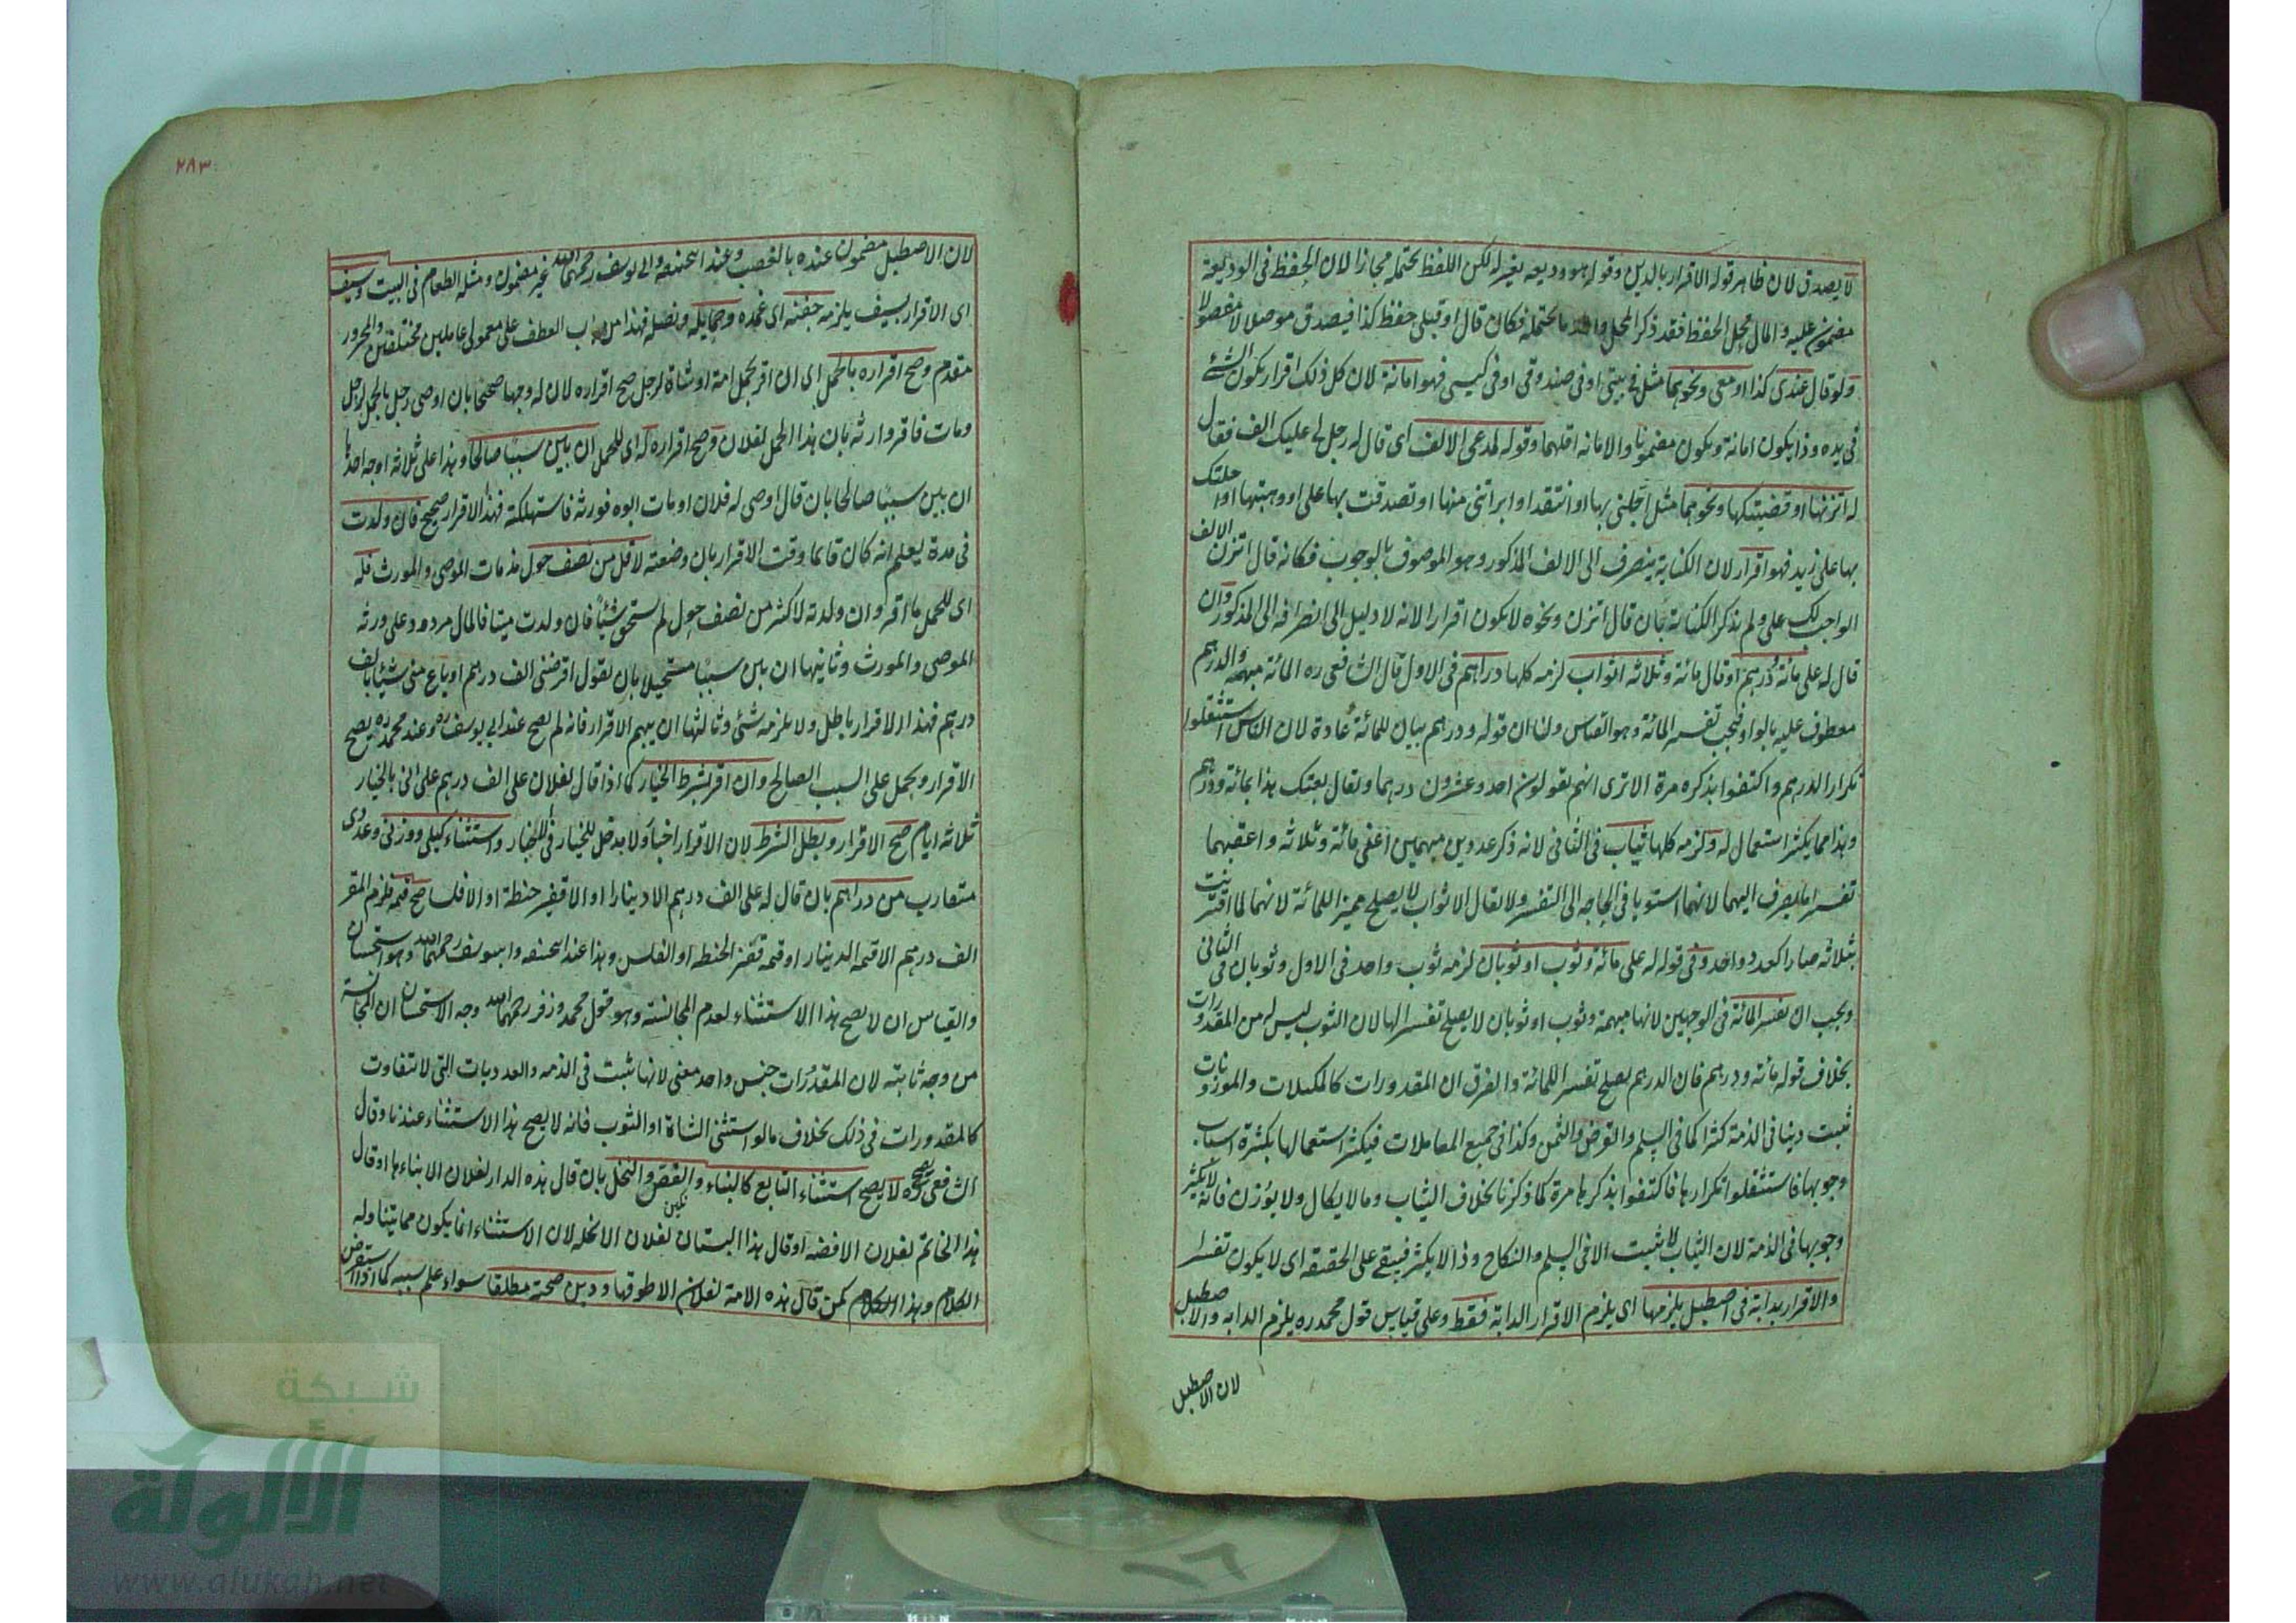 لا يصدق لان ظاهر قوله الاقرار بالدين وقوله هو وديعه يغيره لكن اللفظ يحتمله مجازا لان الحفظ فى الوديعة
مضمون عليه والمال محل الحفظ فقد ذكر المحل ما يحتمله فكان قال او قبلى حفظ كذا فيصدق موصلا لا مفصولا
ولو قال عندى كذا او معى ونحوهما مثل فى بيتى او فى صندوقى او فى كيسى فهو امانة لان كل ذلك اقرار بكون الشئ
فى يده وذا يكون امانة ويكون مضمونا والامانه اقلهما وقوله لمدعى الالف اى قال له رجل لى عليك الف فقال
له اتزنها او قضيتكها ونحوهما مثل اجلنى بها او انتقد او ابراتنى منها او تصدقت بها على او وهبتها او احلتك
بها على زيد فهو اقرار لان الكناية ينصرف الى الالف المذكور وهو الموصوف بالوجوب فكانه قال اتزن الالف
الواجب لك على ولم يذكر الكناية بان قال اتزن ونحوه لا يكون اقرارا لانه لا دليل الى انصرافه الى المذكور وان
قال له على مائة ودرهم او قال مائة وثلاثه اثواب لزمه كلها دراهم فى الاول قال الشافعى ره المائة مبهمه والدرهم
معطوف عليه بالواو فيجب تفسير المائة وهو القياس ولنا ان قوله ودرهم بيان للمائة عادة لان الناس استثقلوا
تكرار الدرهم واكتفوا بذكره مرة الا ترى انهم يقولون احد وعشرون درهما ويقال بعتك هذا بمائة ودرهم
وهذا مما يكثر استعمال له ولزمه كلها ثياب فى الثانى لانه ذكر عددين مبهمين اعنى مائة وثلاثه واعقبهما
تفسيرا فيصرف اليهما لانهما استويا فى الحاجه الى التفسير ولا يقال الاثواب لا يصلح مميزا للمائة لانهما لما اقترنت
بثلاثه صارا كعدد واحد وفى قوله له على مائة وثوب او ثوبان لزمه ثوب واحد فى الاول وثوبان فى الثانى
ويجب ان يفسر المائة فى الوجهين لانها مبهمة وثوب او ثوبان لا يصلح تفسيرا لها لان الثوب ليس له من المقدرات
بخلاف قوله مائه ودرهم فان الدرهم يصلح تفسيرا للمائة والفرق ان المقدورات كالمكيلات والموزونات
ثبيت دينا فى الذمة كثيرا كما فى السلم والقرض والثمن وكذا فى جميع المعاملات فيكثر استعمالها بكثرة اسباب
وجوبها فاستثقلوا تكرارها فاكتفوا بذكرها مرة كما ذكرنا بخلاف الثياب وما لا يكال ولا يوزن فانه لا يكثر
وجوبها فى الذمة لان الثياب لا تثبت الا فى السلم والنكاح وذا لا يكثر فيبقى على الحقيقه اى لا يكون تفسيرا
والاقرار بدابة فى اصطبل يلزمها اى يلزم الاقرار الدابة فقط وعلى قياس قول محمد ره يلزم الدابه والاصطبل
لان الاصطبل
٢٨٣
لان الاصطبل مضمون عنده بالغصب وعند ابيحنيفه وابى يوسف رحمهما الله غير مضمون ومثله الطعام فى البيت وبسيف
اى الاقرار بسيف يلزمه جفنه اى غمده وحمايله ونصله فهذا من باب العطف على معمولى عاملين مختلفين والمجرور
مقدم وصح اقراره بالحمل اى ان اقر بحمل امة او شاة لرجل صح اقراره لان له وجها صحيحا بان اوصى رجل بالحمل لرجل
ومات فاقر وارثه بان هذا الحمل لفلان وصح اقراره له اى للحمل ان بين سببا صالحا وهذا على ثلاثه اوجه احدها
ان بين سببا صالحا بان قال اوصى له فلان او مات ابوه فورثه فاستهلكته فهذا الاقرار صحيح فان ولدت
فى مدة يعلم انه كان قايما وقت الاقرار بان وضعته لاقل من نصف حول مذ مات الموصى والمورث فله
اى للحمل ما اقر وان ولدته لاكثر من نصف حول لم يستحق شيئا فان ولدت ميتا فالمال مردود على ورثه
الموصى والمورث وثانيها ان بين سببا مستحيلا بان يقول اقرضنى الف درهم او باع منى شيئا بالف
درهم فهذا الاقرار باطل ولا يلزمه شئ وثالثها ان يبهم الاقرار فانه لم يصح عند ابى يوسف ره وعند محمد ره يصح
الاقرار ويحمل على السبب الصالح وان اقر بشرط الخيار كما اذا قال لفلان على الف درهم على انى بالخيار
ثلاثه ايام صح الاقرار وبطل الشرط لان الاقرار اخبار ولا مدخل للخيار فى الاخبار واستثناء كيلى ووزنى وعددى
متقارب من دراهم بان قال له على الف درهم الا دينارا او الا قفيز حنطة او الا فلسا صح قيمة فلزم المقر
الف درهم الا قيمه الدينار او قيمه قفيز الحنطه او الفلس وهذا عند ابيحنيفه وابيوسف رحمهما الله وهو استحسان
والقياس ان لا يصح هذا الاستثناء لعدم المجانسة وهو قول محمد وزفر رحمهما الله وجه الاستحسان ان المجانسة
من وجه ثابته لان المقدرات جنس واحد معنى لانها ثبت فى الذمه والعدديات التى لا تتفاوت
كالمقدورات فى ذلك بخلاف ما لو استثنى الشاة او الثوب فانه لا يصح هذا الاستثناء عندنا وقال
الشافعى ره يصح لا يصح استثناء التابع كالبناء والفص والنخل بان قال هذه الدار لفلان الا بناءها او قال
هذا الخاتم لفلان الا فصه او قال هذا البستان لفلان الا نخله لان الاستثناء انما يكون مما يتناوله
الكلام وبهذا الكلام كمن قال هذه الامة لفلان الا طوقها ودين صحته مطلقا سواء علم سببه كما اذا استقرض
شبكة
الألوكة
www.alukah.net